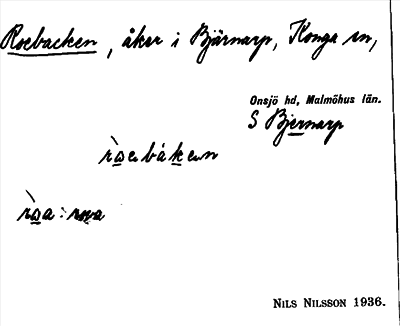 Roebacken, åker i Bjärnarp, Konga sn,
Onsjö hd, Malmöhus län.
S Bjernarp
ròe báken
ròa: roa
NILS NILSSON 1936.